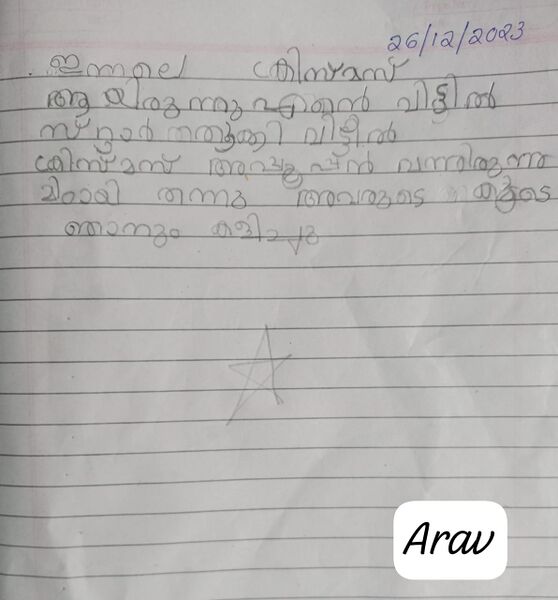 26/12/2023
ഇന്നലെ ക്രിസ്മസ്
ആയിരുന്നു എൻ്റെ വീട്ടിൽ
സ്റ്റാർ തൂക്കി വീട്ടിൽ
ക്രിസ്മസ് അപ്പൂപ്പൻ വന്നിരുന്നു
മിഠായി തന്നു അവരുടെ കൂടെ
ഞാനും കളിച്ചു
Arav